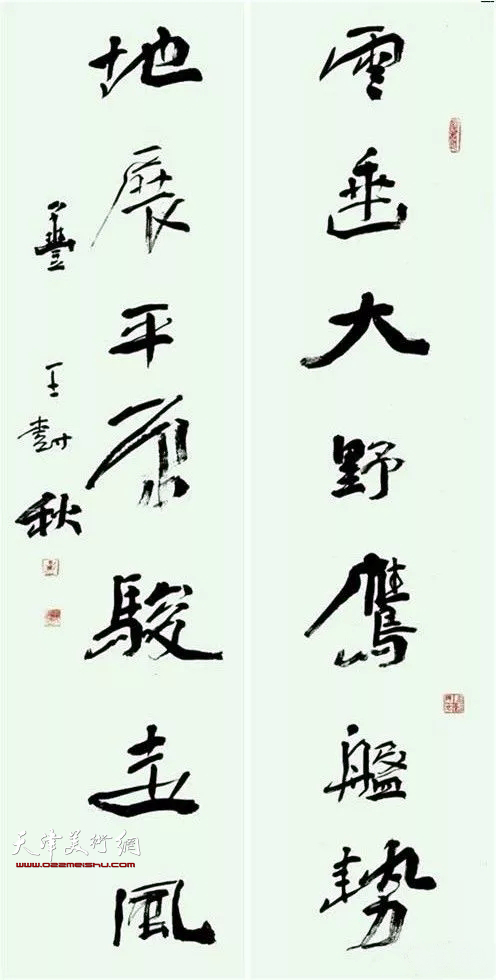 雲垂大野鷹盤勢
地展平原駿走風
王樹秋
天津美術網
www.022meishu.com